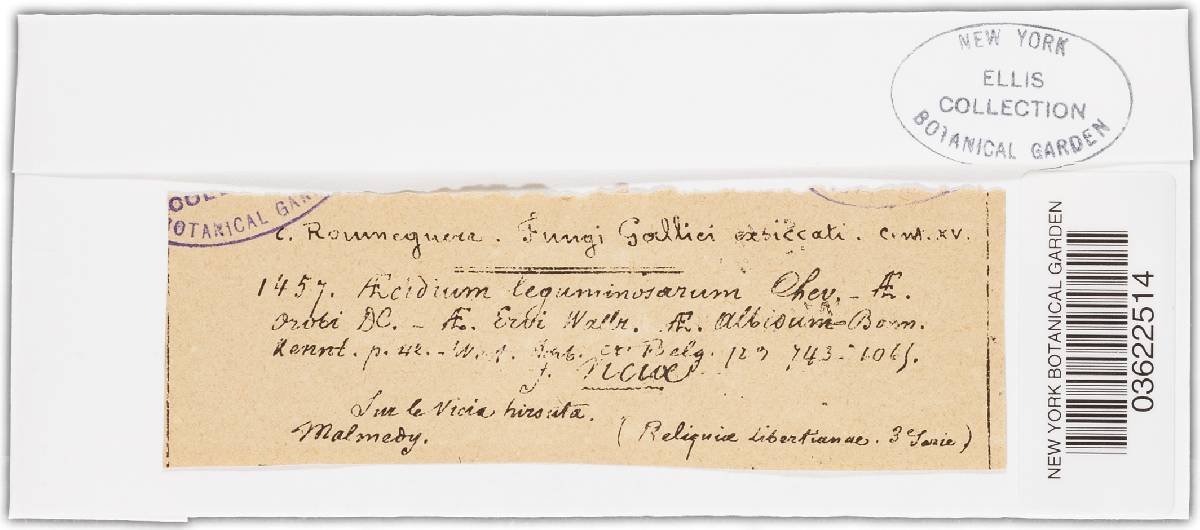 NEW YORK
ELLIS
COLLECTION
BOTANICAL GARDEN
BOTANICAL GAR
C. Roumeguere. Fungi Gallici exsiccati. Cent. XV.
1457. Æcidium leguminosarum Chev. - Æ.
Orobi DC. - Æ. Ervi Wallr. Æ. Albidum - Bonn.
p. 42. - West. Herb. cr. Belg. nº 743-1065.
f. Viciæ
Sur le Vicia hirsuta.
Malmedy. (Reliquiæ Libertianae. 3e Serie)
NEW YORK BOTANICAL GARDEN
03622514